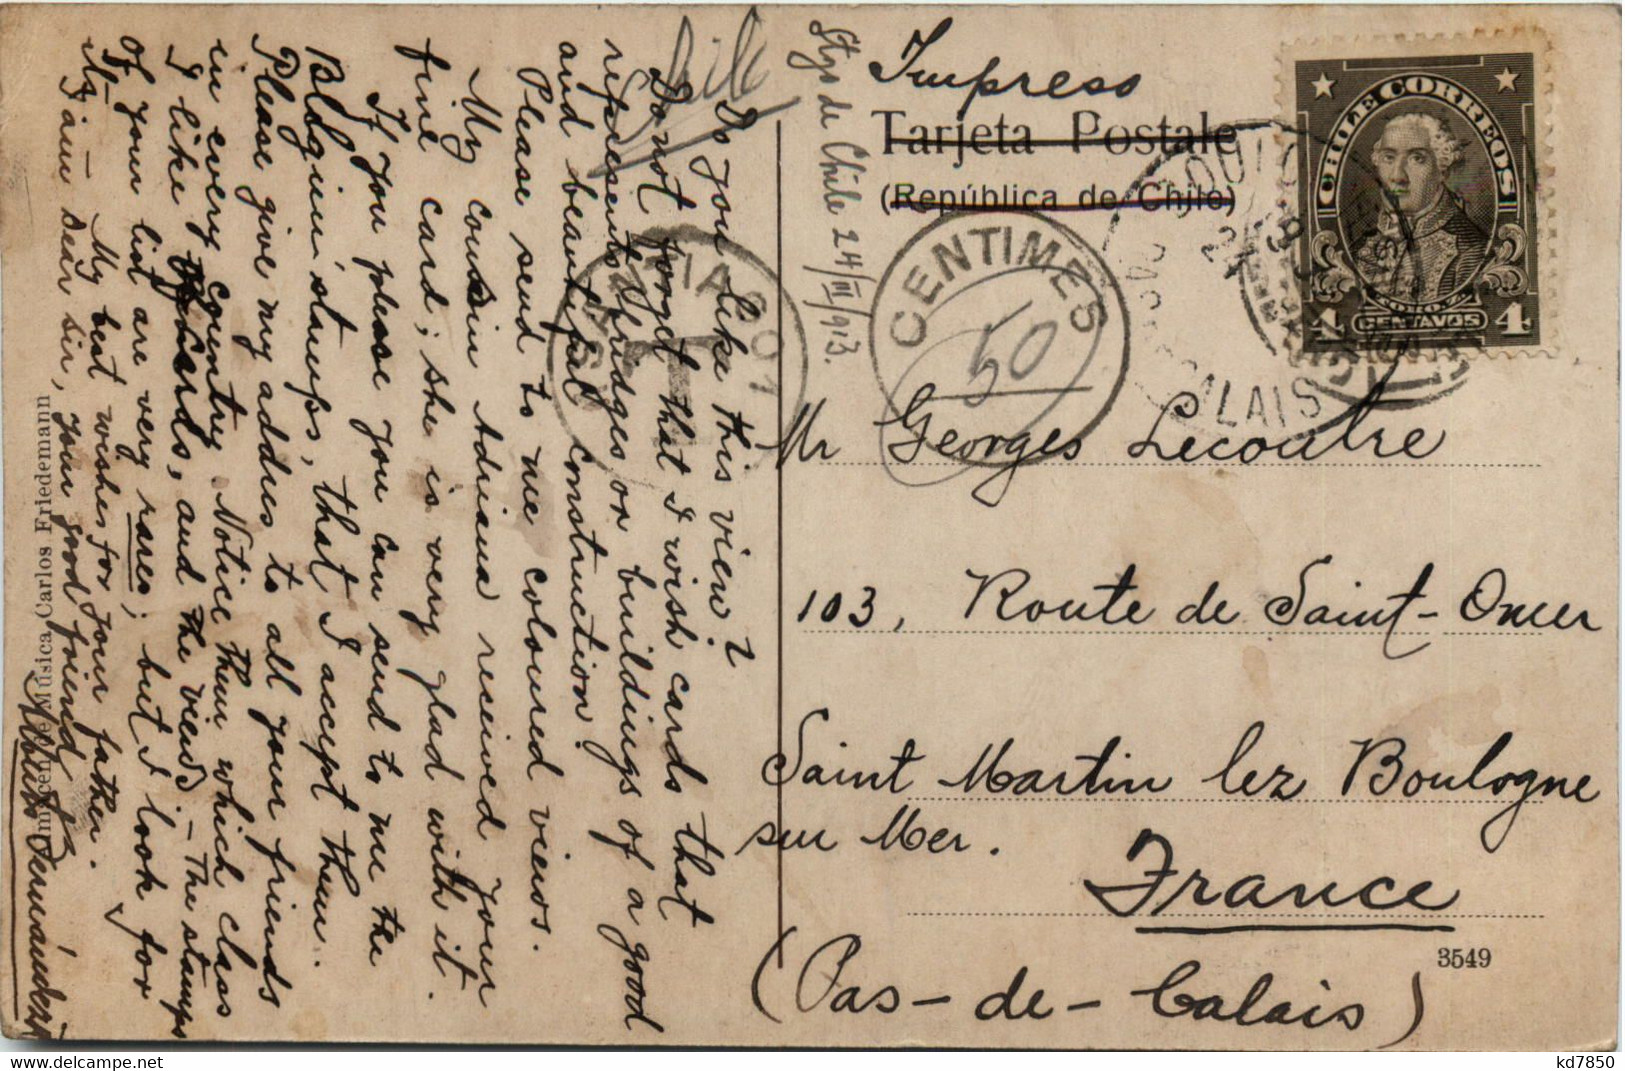 Chile
Stgo de Chile 24/III/913.
Do you like this view?
Do not forget that I wish cards that
represents bridges or buildings of a good
and beautiful construction.
Please send to me coloured views.
My cousin Adriana received your
fine card; she is very glad with it.
If you please you can send to me the
Belgium stamps, that I accept them.
Please give my addres to all your friends
in every country. Notice them which class
I like cards, and the views – The stamps
of your list are very rares; but I look for
it. – My best wishes for your father.
I am dear sir, your good friend
Música Carlos Friedemann
Impreso
Tarjeta Postale
(República de Chile)
CHILE CORREOS
4 CENTAVOS 4
CENTIMES
10
T
CALAIS
Mr Georges Lecoutre
103, Route de Saint-Omer
Saint Martin lez Boulogne
sur Mer.
France
(Pas-de-Calais)
3549
kd7850